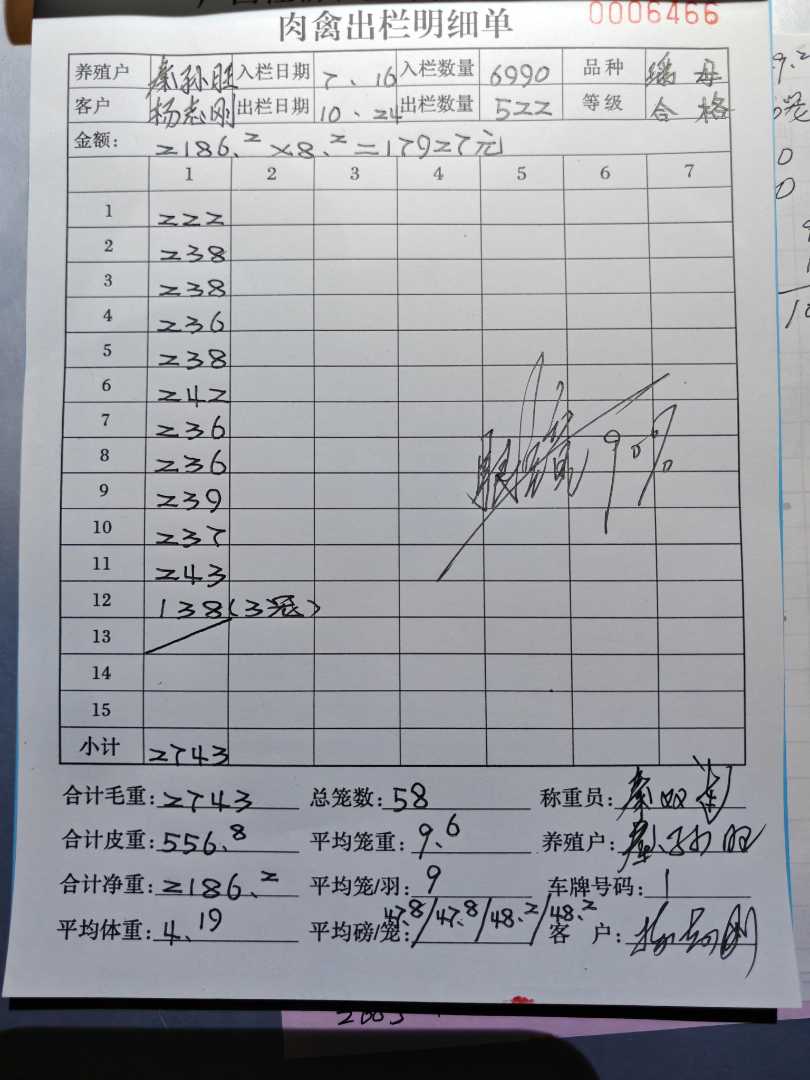 0006466
肉禽出栏明细单
养殖户 秦孙旺 入栏日期 7、16 入栏数量 6990 品种 瑶母
客户 杨志刚 出栏日期 10、24 出栏数量 522 等级 合格
金额: 2186.2×8.2=17927元
1 2 3 4 5 6 7
1 222
2 238
3 238
4 236
5 238
6 242
7 236
8 236
9 239
10 237
11 243
12 138(3冠)
13
14
15
小计 2743
90%
合计毛重:2743 总笼数:58 称重员:
合计皮重:556.8 平均笼重:9.6 养殖户:秦孙旺
合计净重:2186.2 平均笼/羽:9 车牌号码:1
平均体重:4.19 平均磅/笼:47.8/47.8/48.2/48.2 客户:杨志刚